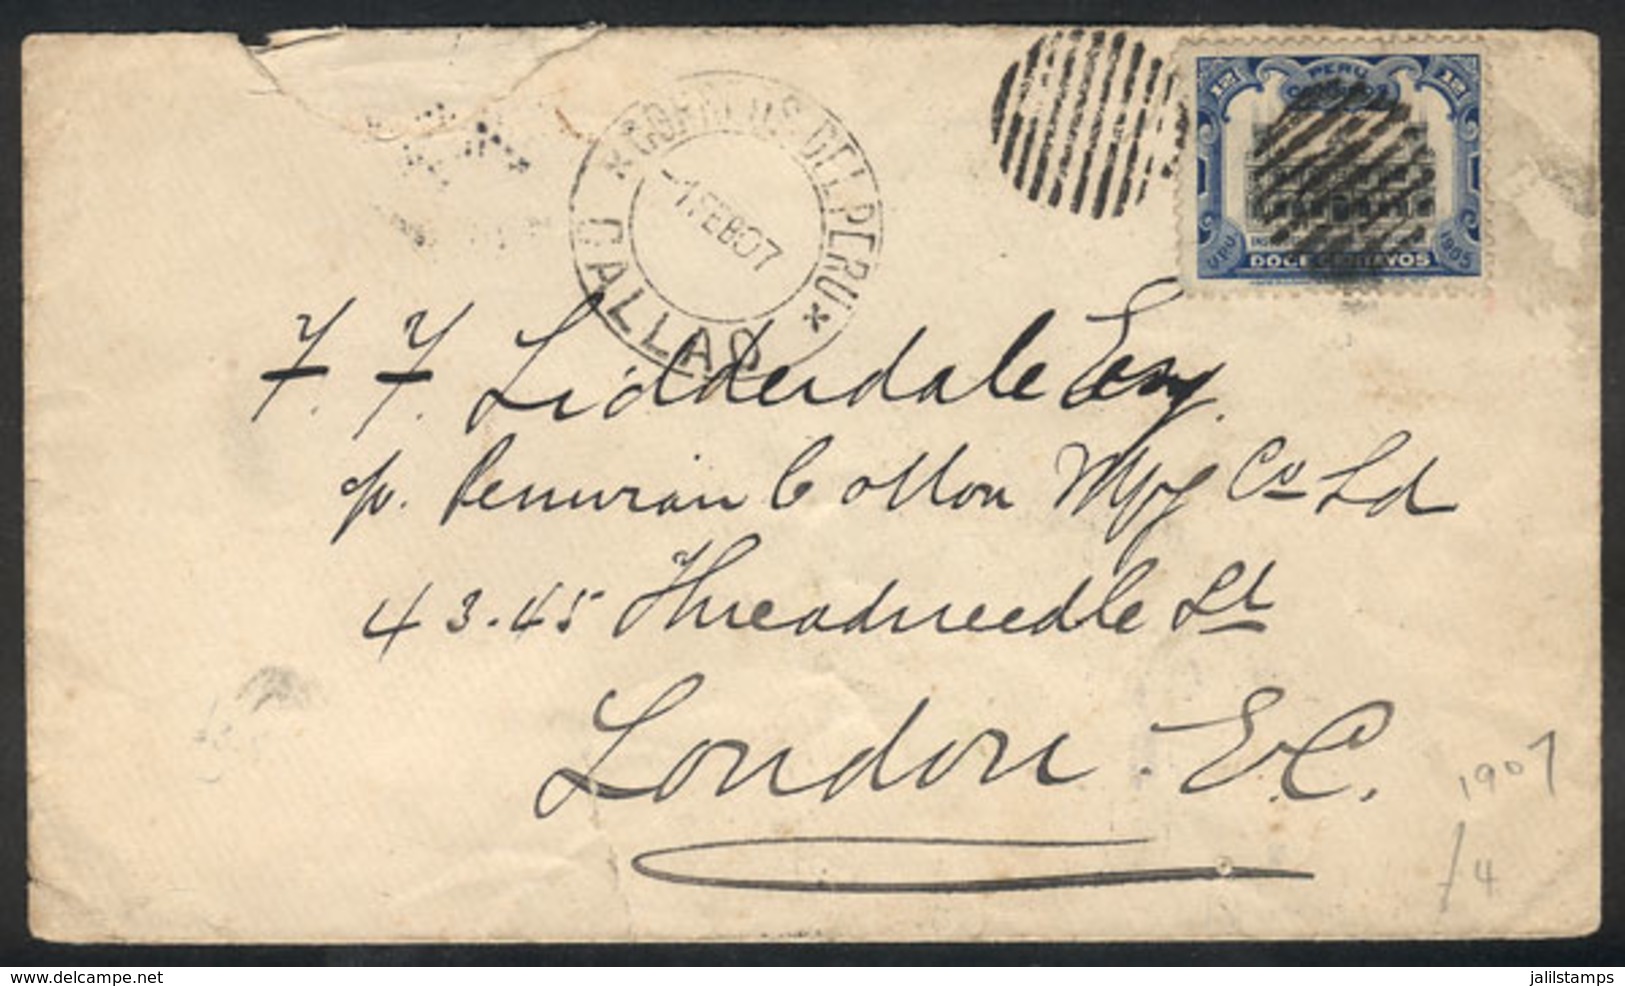 CORREOS DEL PERU
-1 FEB 07
CALLAO
12 PERU 12
CORREOS
1905
DOCE CENTAVOS
F. F. Lidderdale Esq.
c/o. Peruvian Cotton Mfg Co Ld
43.45 Threadneedle St
London E.C.
1907
/4
delcampe.net
jalilstamps